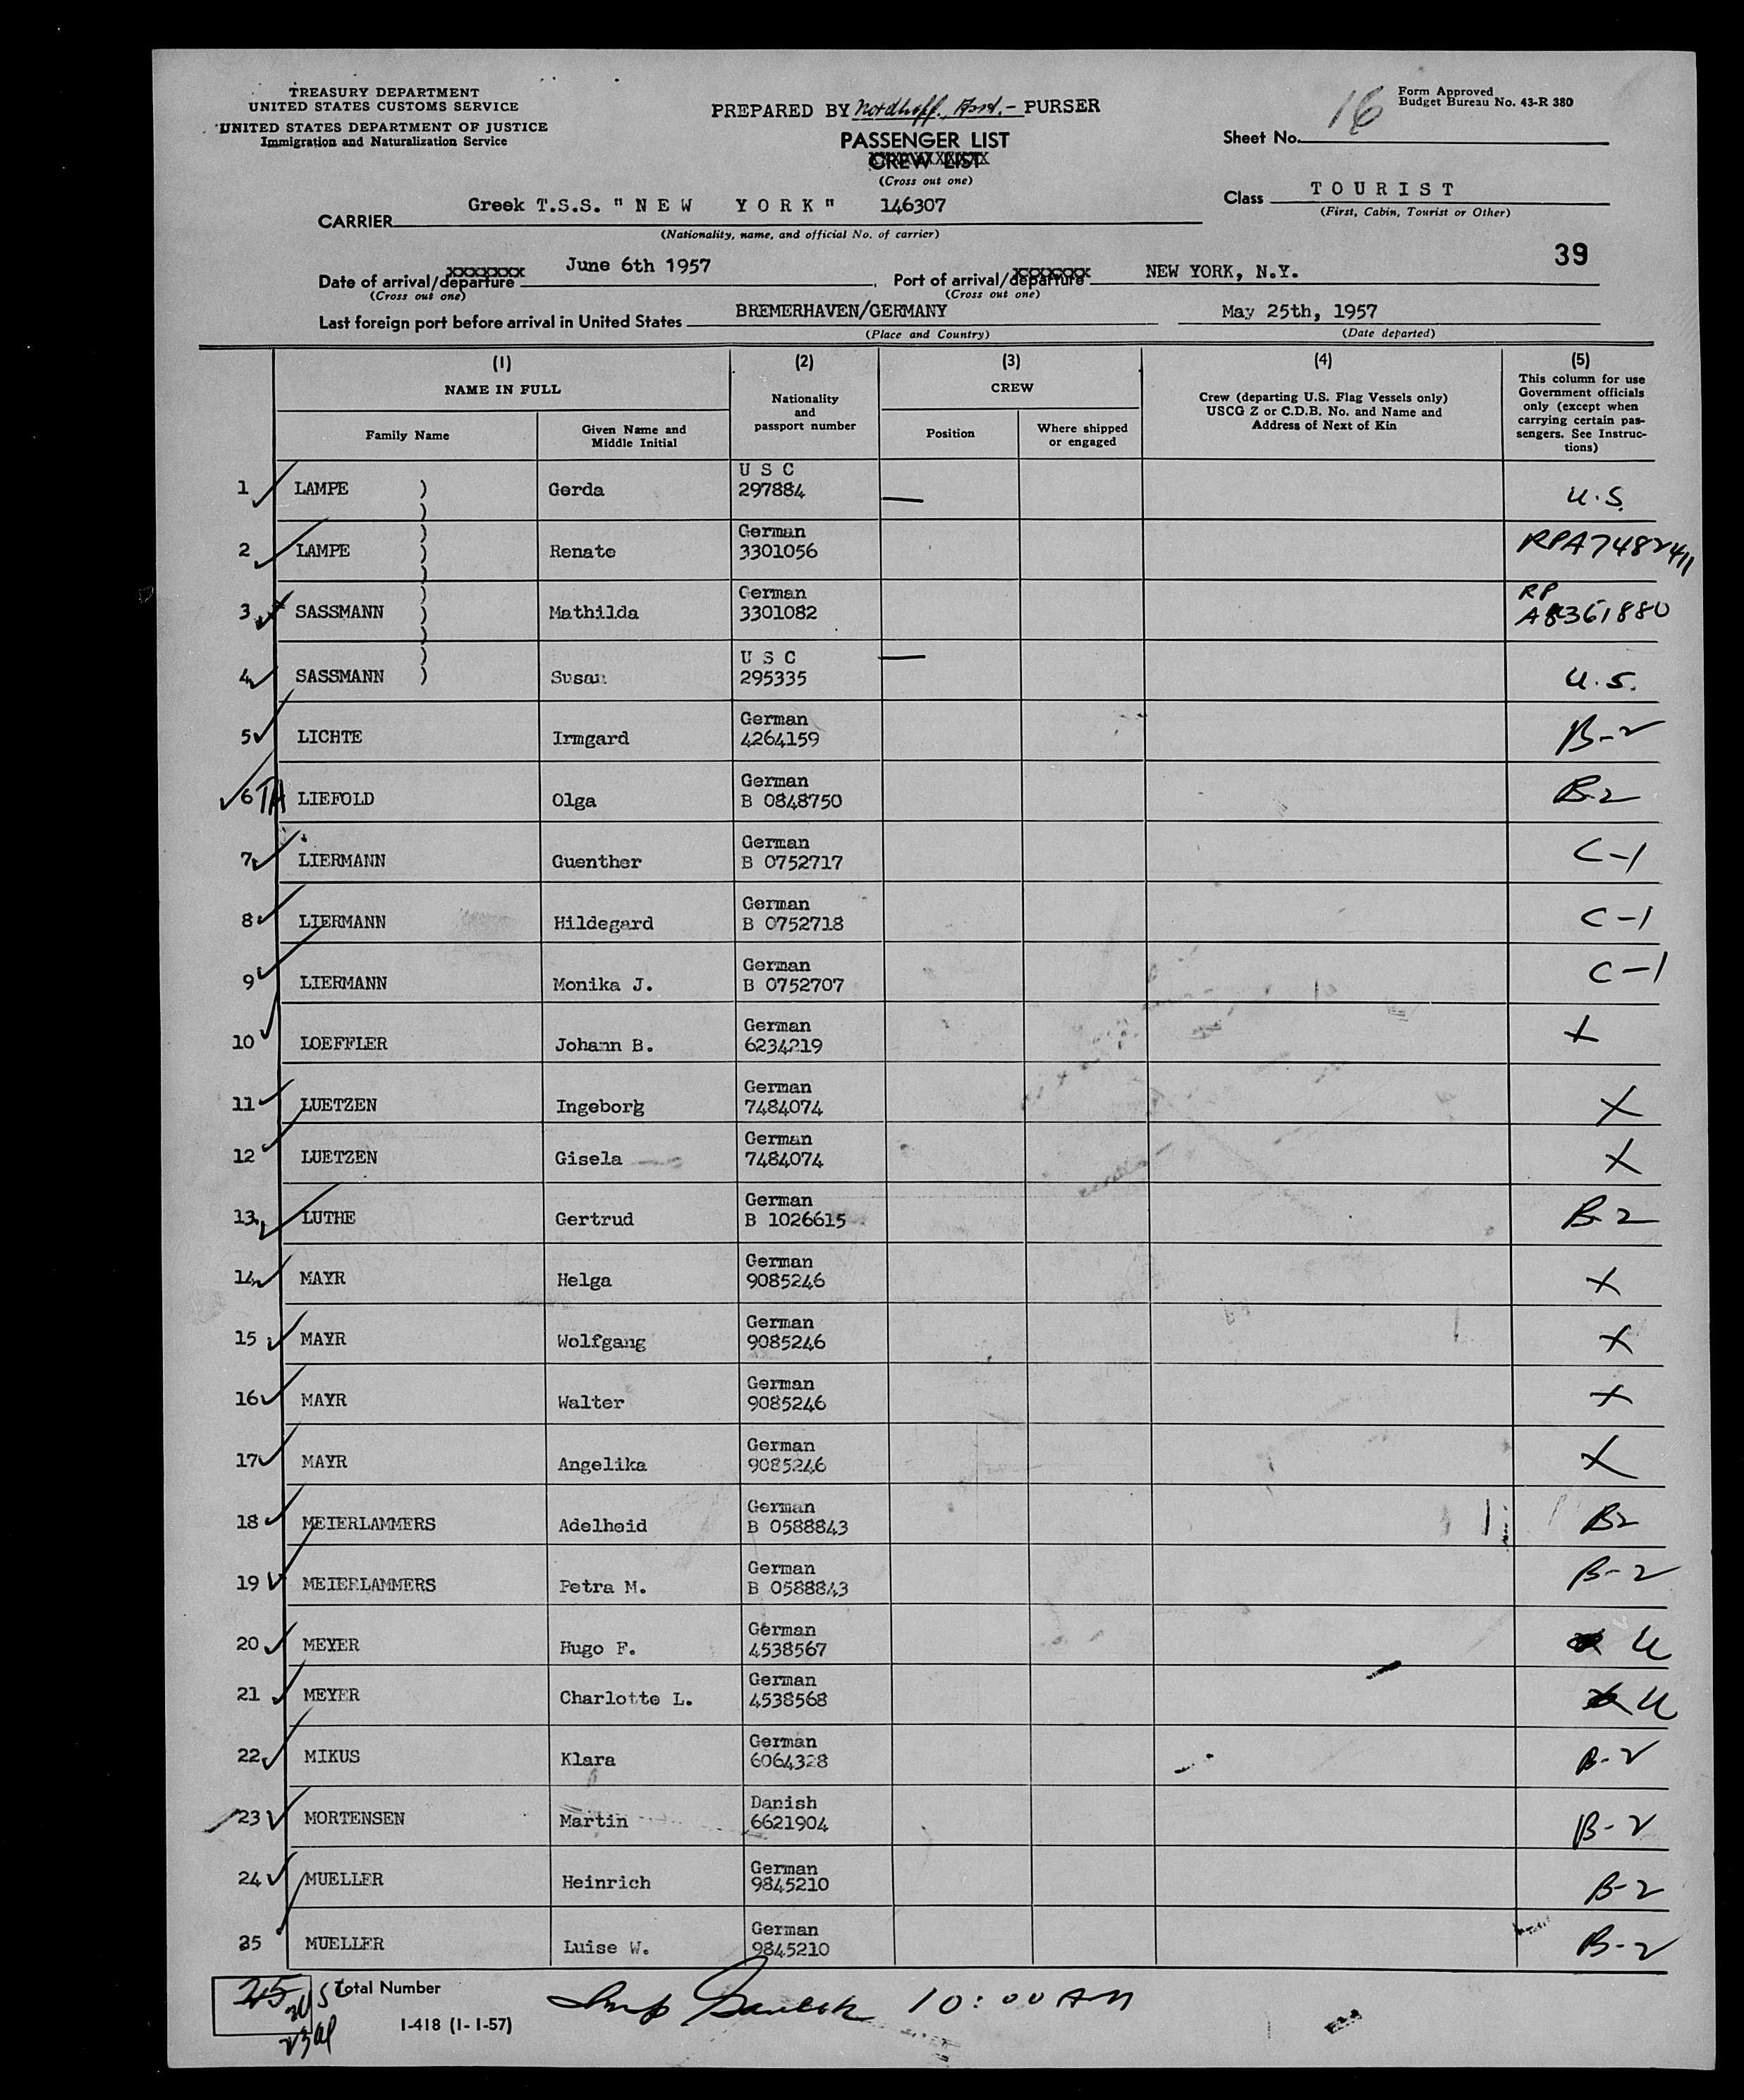 TREASURY DEPARTMENT
UNITED STATES CUSTOMS SERVICE
UNITED STATES DEPARTMENT OF JUSTICE
Immigration and Naturalization Service
PREPARED BY Nordhoff. Asst.- PURSER
PASSENGER LIST
CREW LIST
(Cross out one)
Form Approved
Budget Bureau No. 43-R 380
Sheet No. 16
Class TOURIST
(First, Cabin, Tourist or Other)
CARRIER Greek T.S.S. "NEW YORK" 146307
(Nationality, name, and official No. of carrier)
39
Date of arrival/departure June 6th 1957
(Cross out one)
Port of arrival/departure NEW YORK, N.Y.
(Cross out one)
Last foreign port before arrival in United States BREMERHAVEN/GERMANY May 25th, 1957
(Place and Country) (Date departed)
(1) (2) (3) (4) (5)
NAME IN FULL
Family Name
Given Name and Middle Initial
Nationality and passport number
CREW
Position
Where shipped or engaged
Crew (departing U.S. Flag Vessels only)
USCG Z or C.D.B. No. and Name and
Address of Next of Kin
This column for use
Government officials
only (except when
carrying certain pas-
sengers. See Instruc-
tions)
1 LAMPE ) Gerda U S C 297884 — U.S.
2 LAMPE ) Renate German 3301056 RPA7482411
3 SASSMANN ) Mathilda German 3301082 RP A8361880
4 SASSMANN ) Susan U S C 295335 — U.S.
5 LICHTE Irmgard German 4264159 B-2
6 TA LIEFOLD Olga German B 0848750 B-2
7 LIERMANN Guenther German B 0752717 C-1
8 LIERMANN Hildegard German B 0752718 C-1
9 LIERMANN Monika J. German B 0752707 C-1
10 LOEFFLER Johann B. German 6234219 X
11 LUETZEN Ingeborg German 7484074 X
12 LUETZEN Gisela German 7484074 X
13 LUTHE Gertrud German B 1026615 B-2
14 MAYR Helga German 9085246 X
15 MAYR Wolfgang German 9085246 X
16 MAYR Walter German 9085246 X
17 MAYR Angelika German 9085246 X
18 MEIERLAMMERS Adelheid German B 0588843 B2
19 MEIERLAMMERS Petra M. German B 0588843 B-2
20 MEYER Hugo F. German 4538567 U
21 MEYER Charlotte L. German 4538568 U
22 MIKUS Klara German 6064328 B-2
23 MORTENSEN Martin Danish 6621904 B-2
24 MUELLER Heinrich German 9845210 B-2
25 MUELLER Luise W. German 9845210 B-2
25 Total Number
2US
23al
I-418 (1-1-57)
10:00 AM